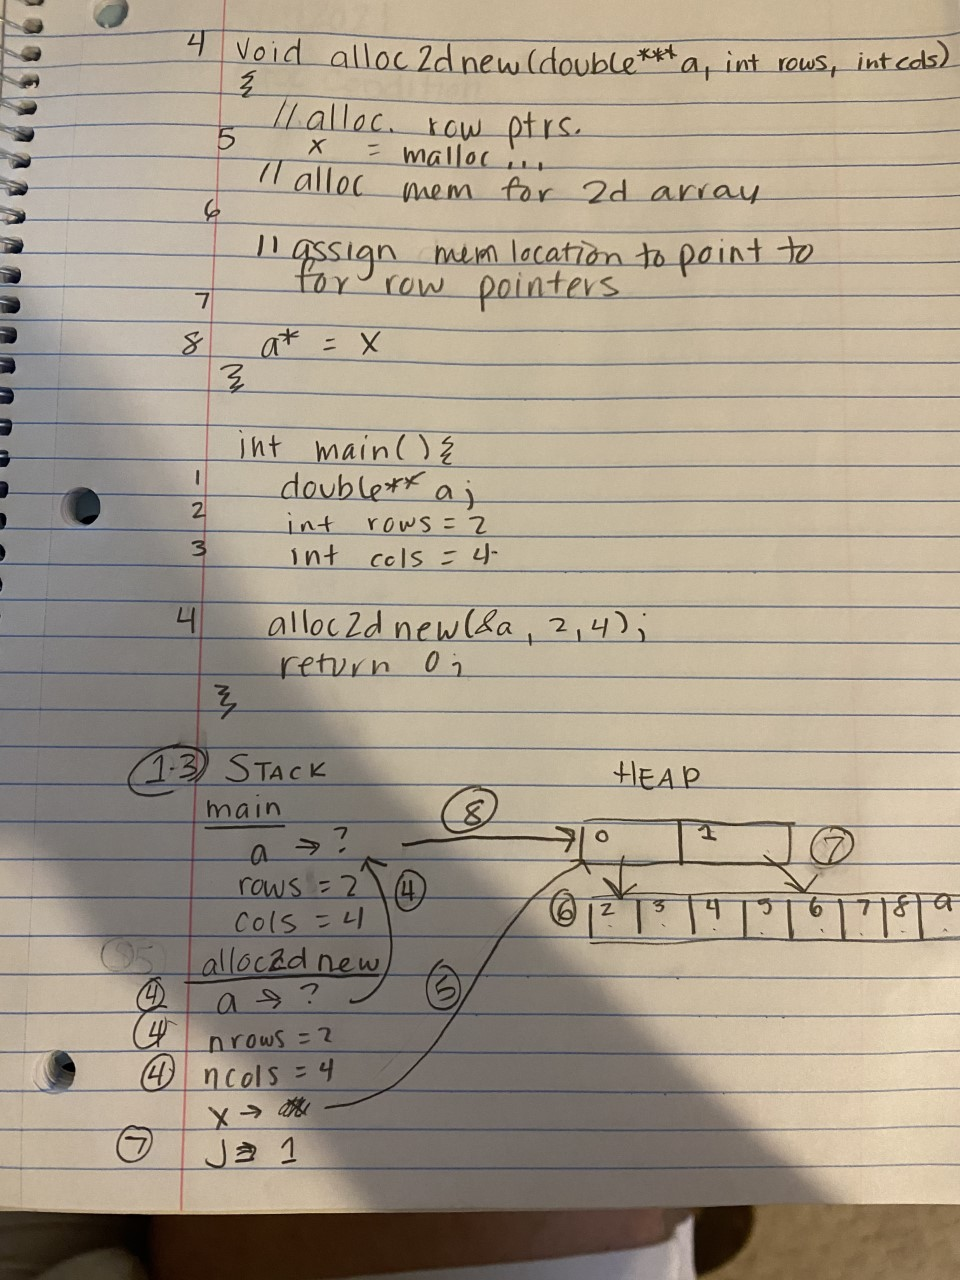 4 void alloc2dnew(double*** a, int rows, int cols)
{
// alloc. row ptrs.
5 x = malloc ...
// alloc mem for 2d array
6
// assign mem location to point to
for row pointers
7
8 a* = x
}
int main() {
1 double** a;
2 int rows = 2
3 int cols = 4
4 alloc2dnew(&a, 2, 4);
return 0;
}
1-3 STACK HEAP
main 8
a → ? 0 1 7
rows = 2 4
cols = 4 6 2 3 4 5 6 7 8 9
alloc2dnew
4 a → ? 5
4 nrows = 2
4 ncols = 4
x →
7 J → 1